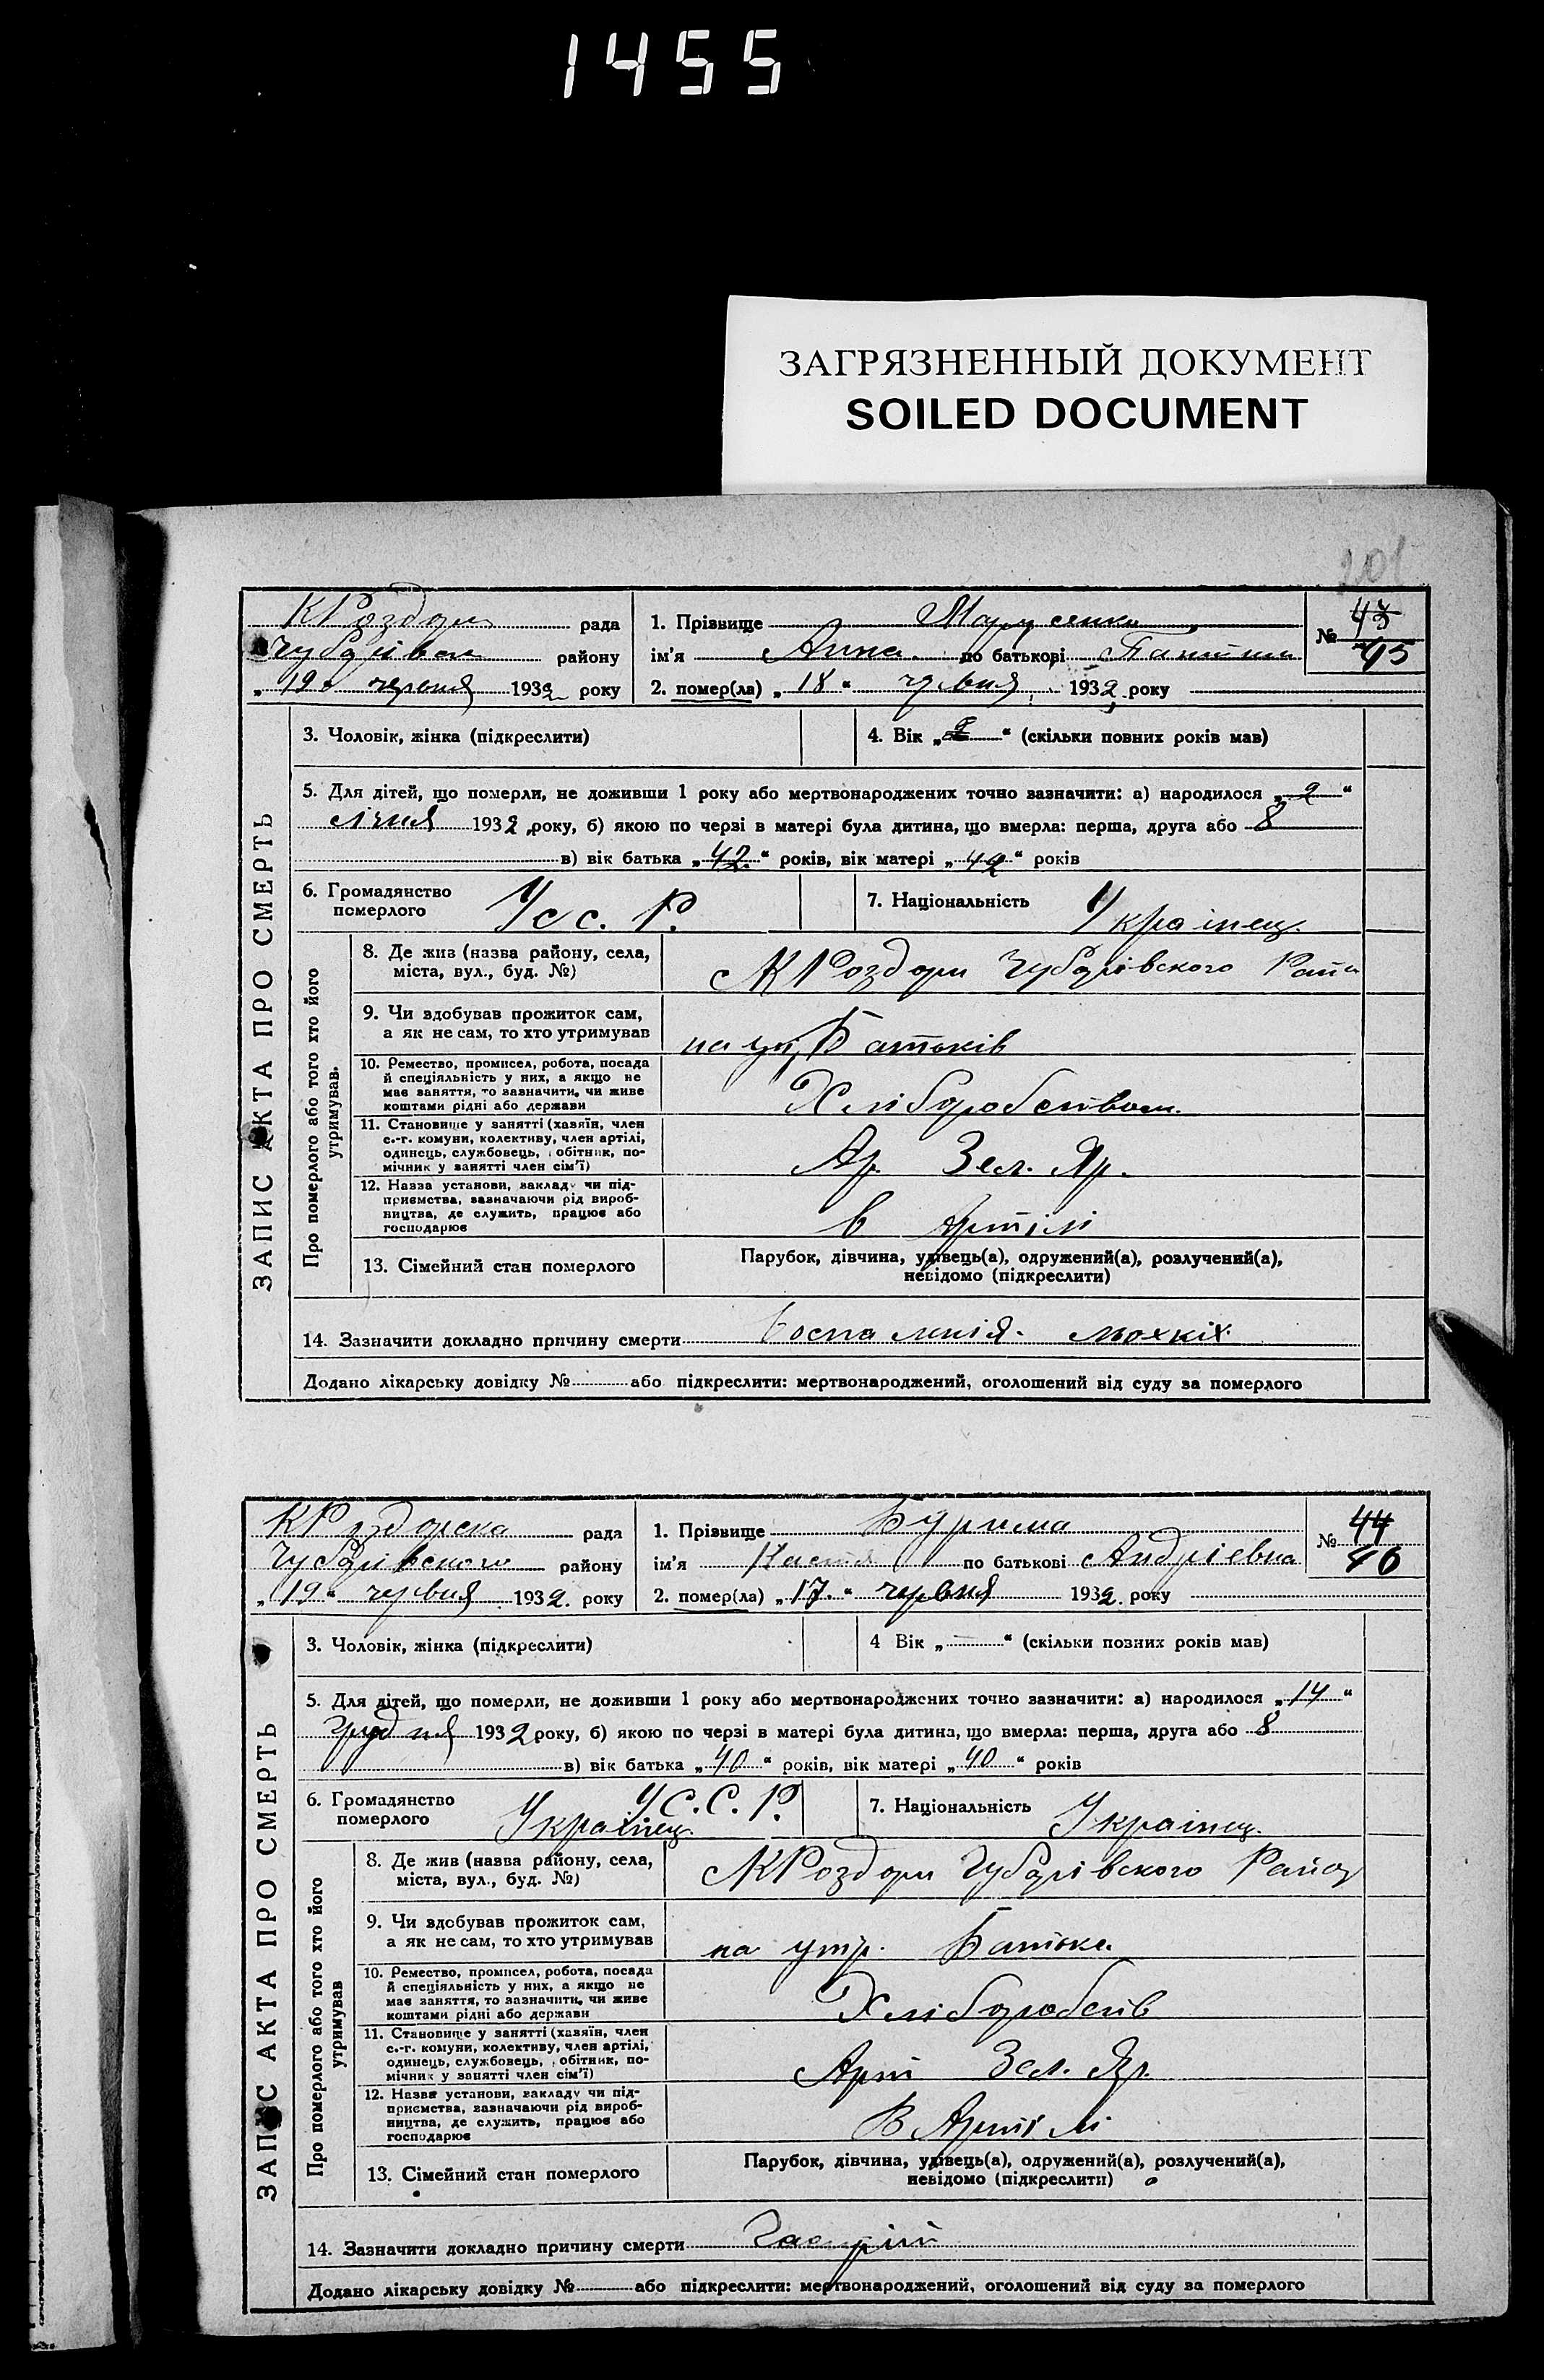 1455
ЗАГРЯЗНЕННЫЙ ДОКУМЕНТ
SOILED DOCUMENT
201
КРоздори рада
1. Прізвище
№ 43
45
району
ім'я Анна по батькові
„19“ червня 1932 року
2. помер(ла) „18“ червня 1932 року
ЗАПИС АКТА ПРО СМЕРТЬ
3. Чоловік, жінка (підкреслити)
4. Вік „ “ (скільки повних років мав)
5. Для дітей, що померли, не доживши 1 року або мертвонароджених точно зазначити: а) народилося „2“
січня 1932 року, б) якою по черзі в матері була дитина, що вмерла: перша, друга або 8
в) вік батька „42“ років, вік матері „42“ років
6. Громадянство
померлого
Усс. Р.
7. Національність Украінец.
Про померлого або того хто його
утримував.
8. Де жив (назва району, села,
міста, вул., буд. №)
КРоздори Чубарівського Райо
9. Чи здобував прожиток сам,
а як не сам, то хто утримував
на ут. Батьків
10. Ремество, промисел, робота, посада
й спеціяльність у них, а якщо не
має заняття, то зазначити, чи живе
коштами рідні або держави
Хліборобством.
11. Становище у занятті (хазяїн, член
с.-г. комуни, колективу, член артілі,
одинець, службовець, обітник, по-
мічник у занятті член сім'ї)
Ар. Зел. Яр.
12. Назва установи, закладу чи під-
приємства, зазначаючи рід вироб-
ництва, де служить, працює або
господарює
в Артілі
13. Сімейний стан померлого
Парубок, дівчина, удівець(а), одружений(а), розлучений(а),
невідомо (підкреслити)
14. Зазначити докладно причину смерти
Додано лікарську довідку № або підкреслити: мертвонароджений, оголошений від суду за померлого
КРоздорска рада
1. Прізвище Бурима
№ 44
46
Чубарівского району
ім'я Настя по батькові Андріевна
„19“ червня 1932. року
2. помер(ла) „17“ червня 1932. року
ЗАПИС АКТА ПРО СМЕРТЬ
3. Чоловік, жінка (підкреслити)
4 Вік „ “ (скільки повних років мав)
5. Для дітей, що померли, не доживши 1 року або мертвонароджених точно зазначити: а) народилося „14“
грудня 1932 року, б) якою по черзі в матері була дитина, що вмерла: перша, друга або 8
в) вік батька „40“ років, вік матері „40“ років
6. Громадянство
померлого
У С. С. Р.
Украінец.
7. Національність Украінец.
Про померлого або того хто його
утримував
8. Де жив (назва району, села,
міста, вул., буд. №)
КРоздори Чубарівского Району
9. Чи здобував прожиток сам,
а як не сам, то хто утримував
на утр. Батька
10. Ремество, промисел, робота, посада
й спеціяльність у них, а якщо не
має заняття, то зазначити, чи живе
коштами рідні або держави
Хліборобств
11. Становище у занятті (хазяїн, член
с.-г. комуни, колективу, член артілі,
одинець, службовець, обітник, по-
мічник у занятті член сім'ї)
Арт Зел. Яр.
12. Назва установи, закладу чи під-
приємства, зазначаючи рід вироб-
ництва, де служить, працює або
господарює
В Артілі
13. Сімейний стан померлого
Парубок, дівчина, удівець(а), одружений(а), розлучений(а),
невідомо (підкреслити)
14. Зазначити докладно причину смерти Гастріт
Додано лікарську довідку № або підкреслити: мертвонароджений, оголошений від суду за померлого